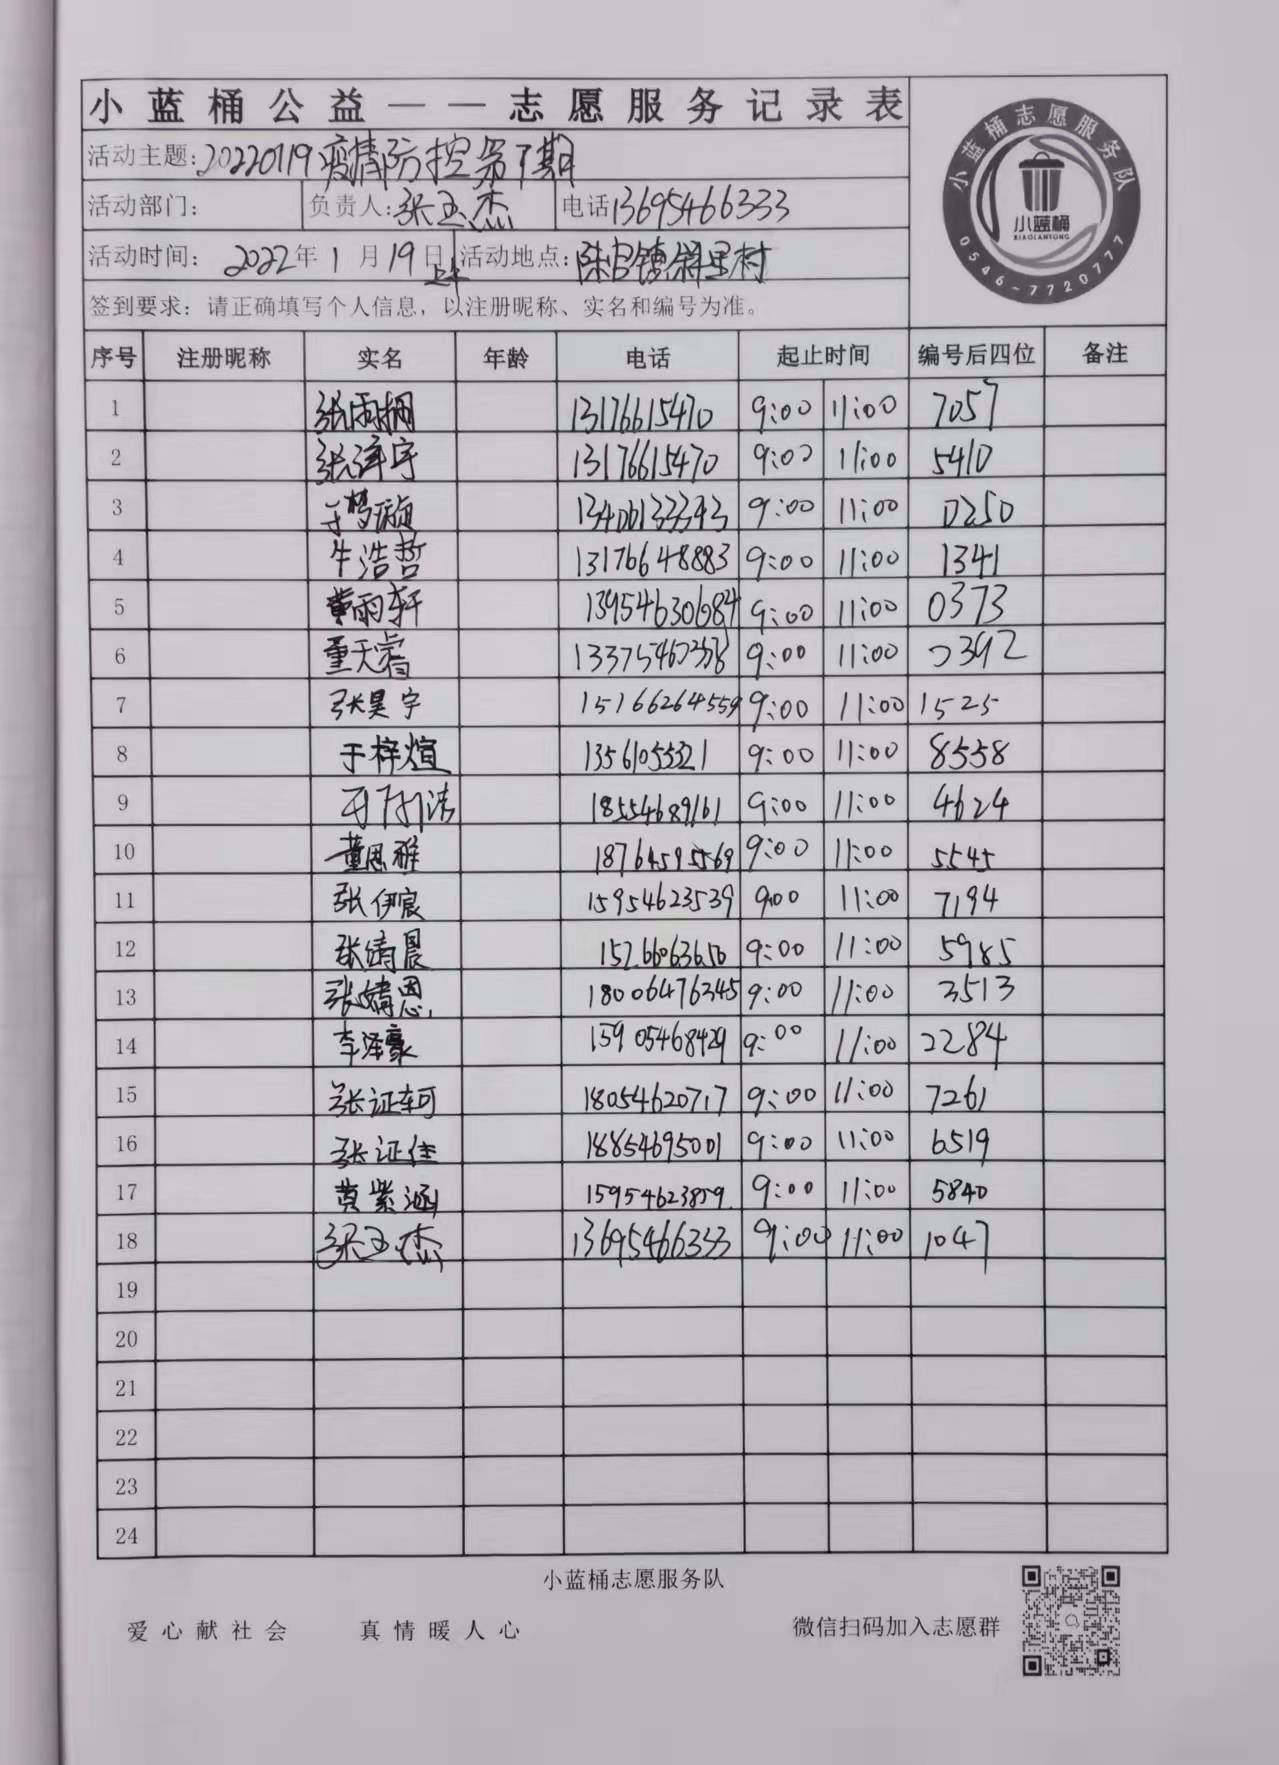 小蓝桶公益——志愿服务记录表
活动主题：20220119疫情防控第7期
活动部门： 负责人：张玉杰 电话13695466333
活动时间： 2022年1月19日上午 活动地点：陈官镇 村
签到要求：请正确填写个人信息，以注册昵称、实名和编号为准。
小蓝桶志愿服务队
小蓝桶
XIAOLANTONG
0546-7720777
序号 注册昵称 实名 年龄 电话 起止时间 编号后四位 备注
1 张雨桐 13176615470 9:00 11:00 7057
2 张泽宇 13176615470 9:00 11:00 5410
3 于梦璇 13406133393 9:00 11:00 0250
4 牛浩哲 13176648883 9:00 11:00 1341
5 黄雨轩 13954630684 9:00 11:00 0373
6 董天睿 9:00 11:00 0392
7 张昊宇 15166264559 9:00 11:00 1525
8 于梓煊 13561055321 9:00 11:00 8558
9 18554689161 9:00 11:00 4624
10 董思雅 18764595569 9:00 11:00 5545
11 张伊宸 15954623539 9:00 11:00 7194
12 张绮晨 9:00 11:00 5985
13 张婧恩 18006476345 9:00 11:00 3513
14 李泽豪 15905468429 9:00 11:00 2284
15 张证轲 18054620717 9:00 11:00 7261
16 张证佳 18854695001 9:00 11:00 6519
17 黄紫涵 15954623859 9:00 11:00 5840
18 张玉杰 13695466333 9:00 11:00 1047
19
20
21
22
23
24
小蓝桶志愿服务队
爱心献社会 真情暖人心 微信扫码加入志愿群